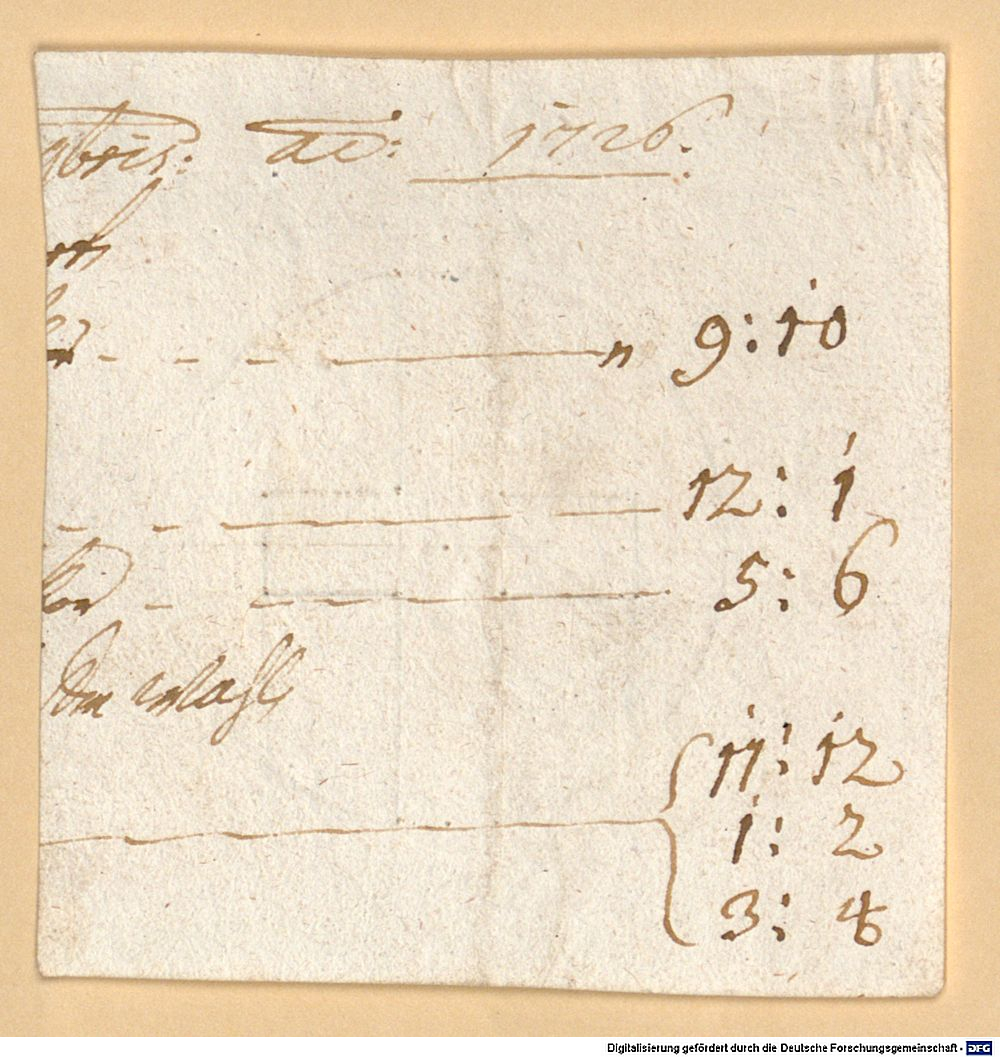 9bris: aō: 1726.
9: 10
12: 1
5: 6
11: 12
1: 2
3: 4
Digitalisierung gefördert durch die Deutsche Forschungsgemeinschaft - DFG